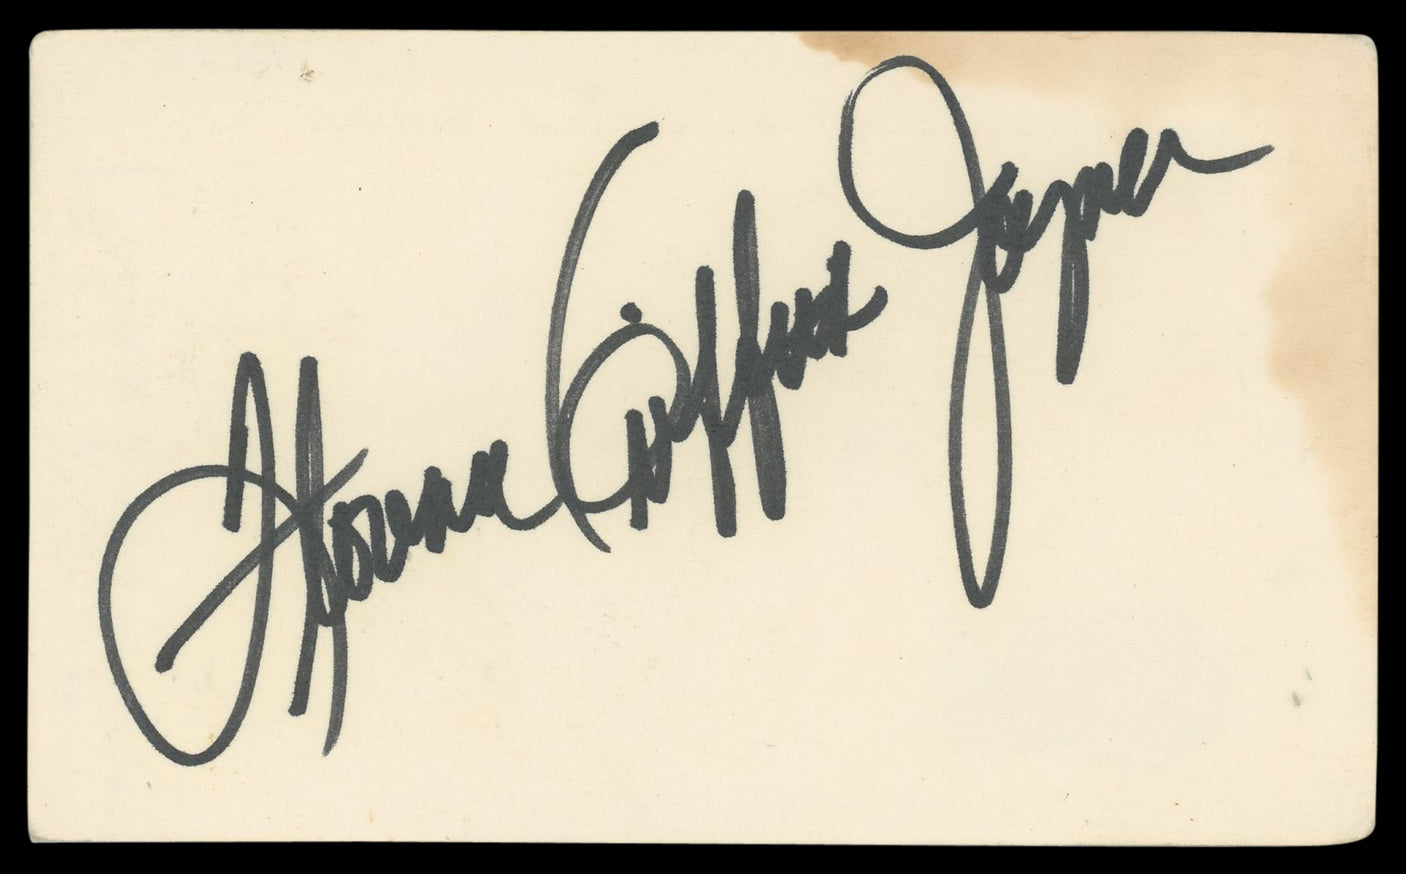 Florence Griffith Joyner